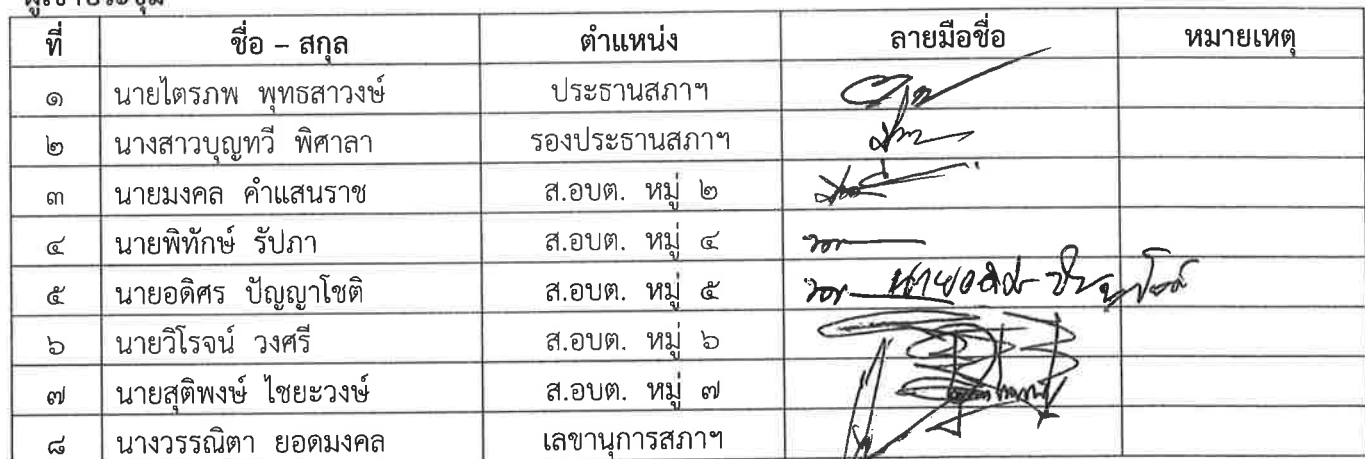 ผู้เข้าประชุม
ที่ ชื่อ – สกุล ตำแหน่ง ลายมือชื่อ หมายเหตุ
๑ นายไตรภพ พุทธสาวงษ์ ประธานสภาฯ
๒ นางสาวบุญทวี พิศาลา รองประธานสภาฯ
๓ นายมงคล คำแสนราช ส.อบต. หมู่ ๒
๔ นายพิทักษ์ รัปภา ส.อบต. หมู่ ๔
๕ นายอดิศร ปัญญาโชติ ส.อบต. หมู่ ๕
๖ นายวิโรจน์ วงศรี ส.อบต. หมู่ ๖
๗ นายสุติพงษ์ ไชยะวงษ์ ส.อบต. หมู่ ๗
๘ นางวรรณิตา ยอดมงคล เลขานุการสภาฯ